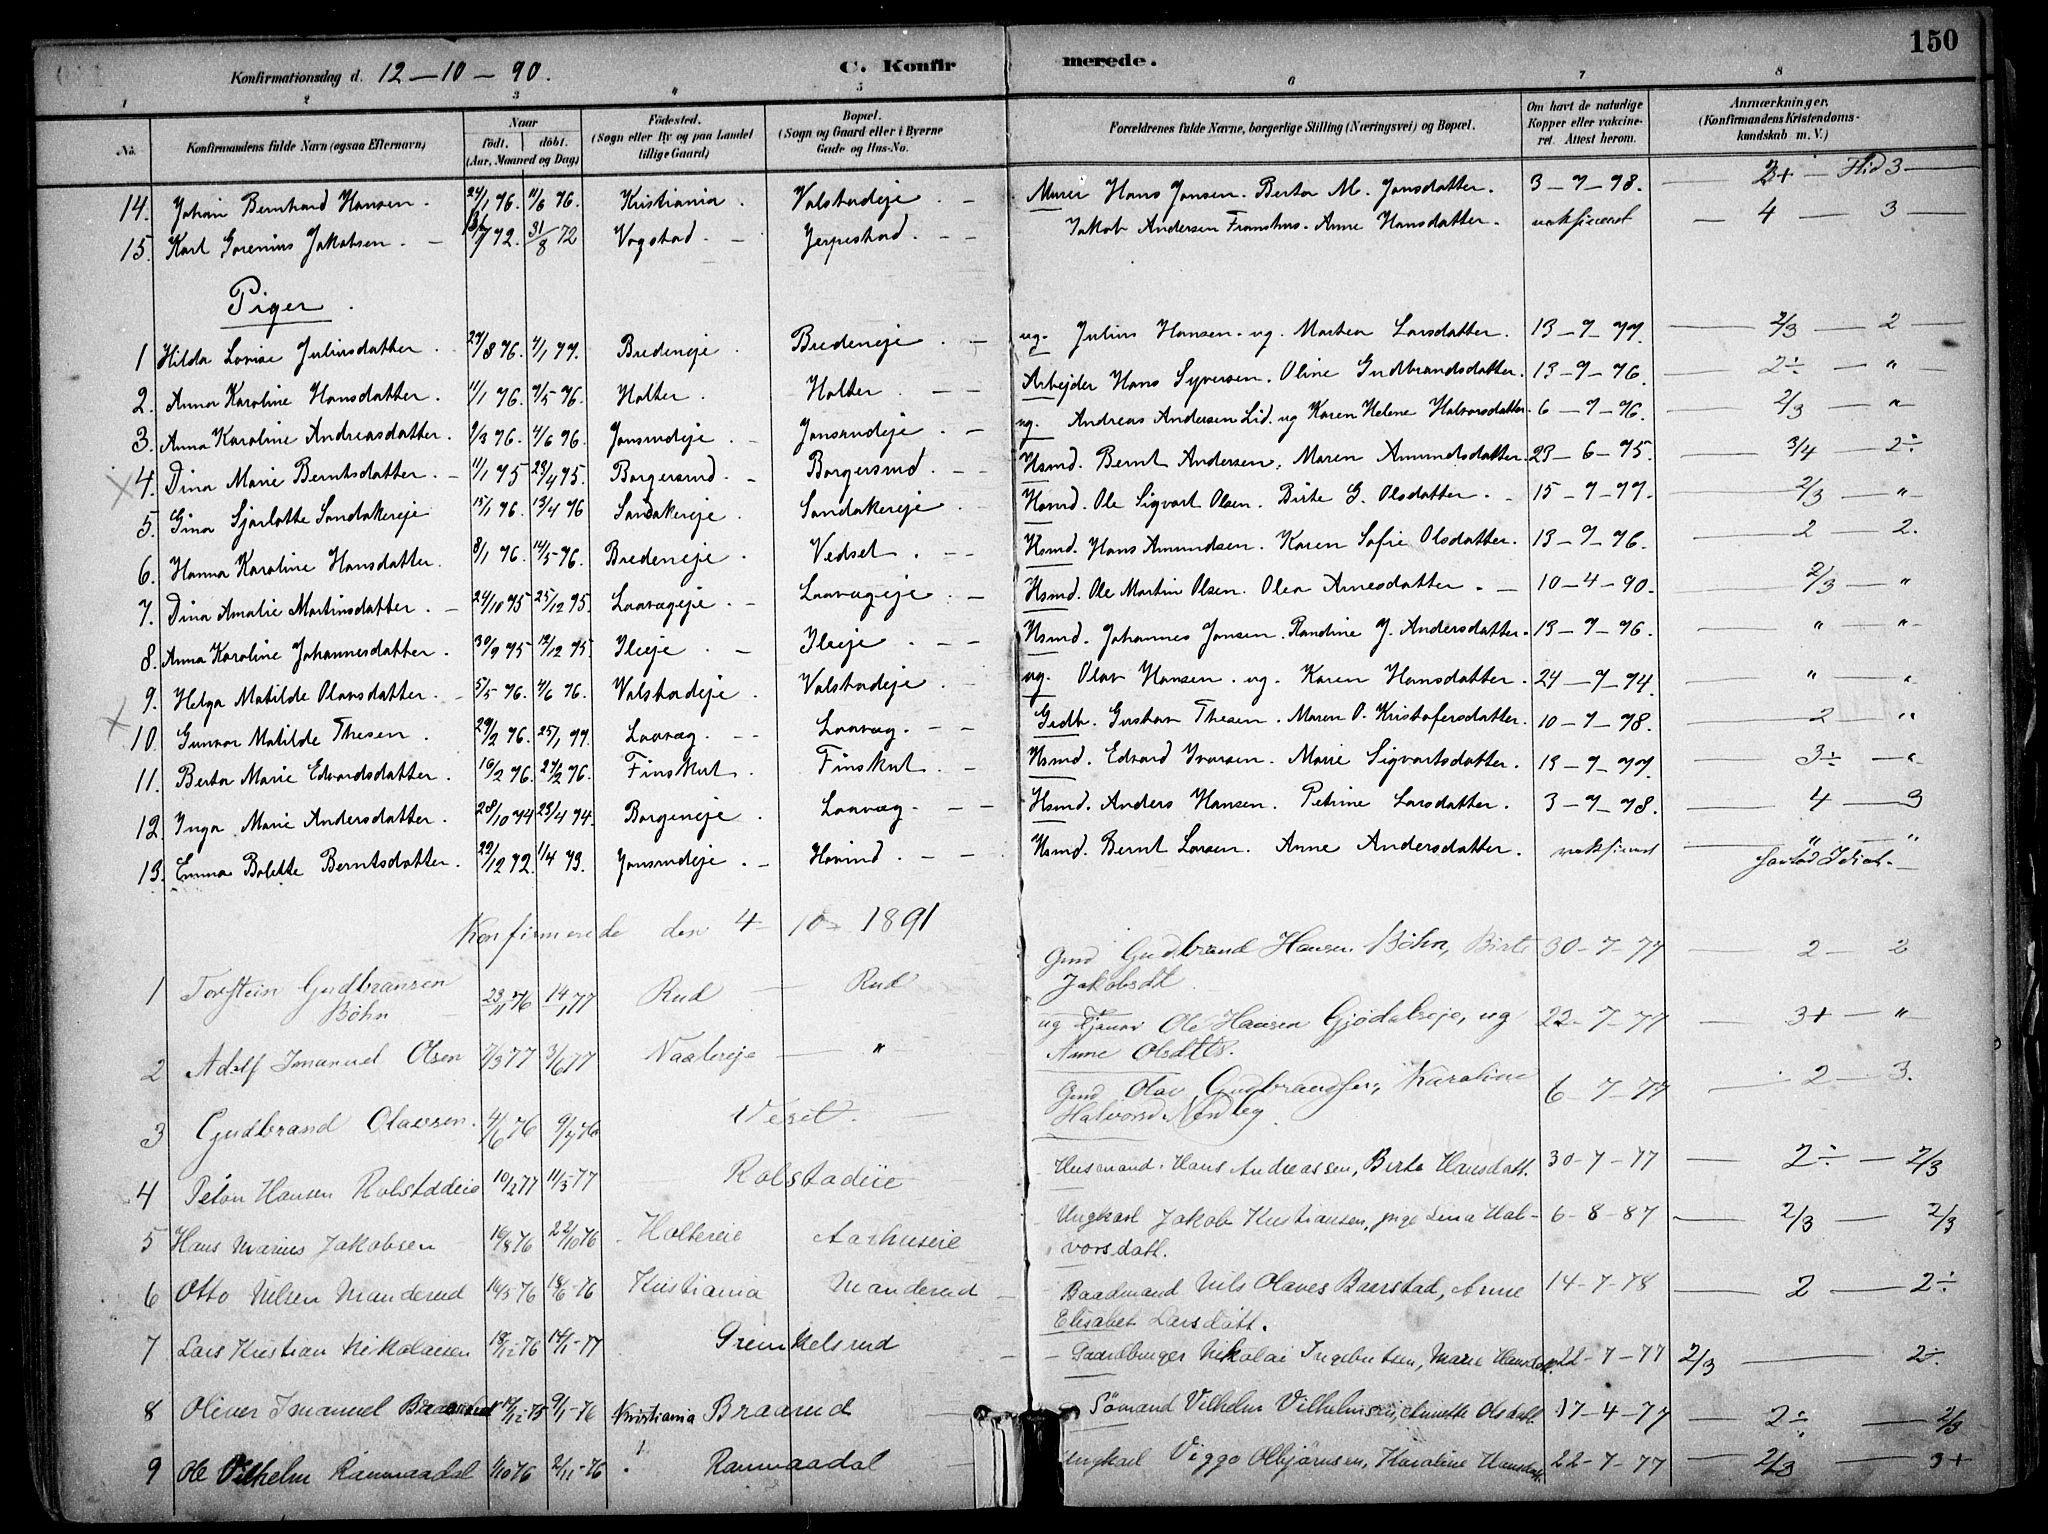 150
Konfirmationsdag d. 12-10-90. C. Konfirmerede.
1 2 3 4 5 6 7 8
No. Konfirmandens fulde Navn (ogsaa Efternavn) Naar født. døbt. (Aar, Maaned og Dag) Fødested. (Sogn eller By og paa Landet tillige Gaard) Bopæl. (Sogn og Gaard eller i Byerne Gade og Hus-No. Forældrenes fulde Navne, borgerlige Stilling (Næringsvei) og Bopæl. Om havt de naturlige Kopper eller vakcineret. Attest herom. Anmærkninger. (Konfirmandens Kristendomskundskab m. V.)
14. Johan Bernhard Hansen. 24/1 76. 11/6 76. Kristiania. Valstadeje. Murer Hans Jonsen. Berta M. Jonsdatter. 3-7-78. 2+ Flid 3
15. Karl Gorenius Jakobsen. 72. 31/8 72 Vogstad. Jerpestad. Jakob Andersen Franshus. Anne Hansdatter. vaksineret 4 3
Piger.
1 Hilda Lovise Juliusdatter. 27/8 76. 7/1 77. Bredeneje. Bredeneje. ug. Julius Hansen. ug. Martea Larsdatter. 13-7-77. 2/3 2
2. Anna Karoline Hansdatter. 11/1 76. 7/5 76. Holter. Holter. Arbejder Hans Syversen. Oline Gudbrandsdatter. 13-7-76. 2÷ "
3. Anna Karoline Andreasdatter. 9/3 76. 4/6 76. Jonsrudeje. Jonsrudeje. ug. Andreas Andersen Lid. ug Karen Helene Halvorsdatter. 6-7-76. 2/3 "
4. Dina Marie Berntsdatter. 11/1 75 23/4 75. Borgersrud. Borgersrud. Hsmd. Bernt Andersen, Maren Amundsdatter. 23-6-75. 3/4 2÷
5. Gina Sjarlotte Sandakereje 15/1 76. 13/4 76 Sandakereje. Sandakereje. Hsmd. Ole Sigvart Olsen. Birte G. Olsdatter. 15-7-77. 2/3 "
6. Hanna Karoline Hansdatter. 8/1 76. 14/5 76. Bredeneje. Vedset. Hsmd. Hans Amundsen. Karen Sofie Olsdatter. 13-7-76. 2 2.
7. Dina Amalie Martinsdatter. 24/10 75 25/12 75. Laavægeje. Laavægeje. Hsmd. Ole Martin Olsen. Olea Arnesdatter. 10-4-90. 2/3 "
8. Anna Karoline Johannesdatter. 30/9 75 12/12 75. Ileeje. Ileeje. Hsmd. Johannes Jonsen. Randine J. Andersdatter. 13-7-76. " "
9. Helga Matilde Olavsdatter. 5/5 76. 4/6 76. Valstadeje. Valstadeje. ug. Olav Hansen. ug. Karen Hansdatter. 24-7-74. " "
10. Gunvor Matilde Thesen. 29/2 76. 25/1 77. Laavæg. Laavæg. Grdb. Gustav Thesen. Maren O. Kristofersdatter. 10-7-78. 2 "
11. Berta Marie Edvardsdatter. 10/2 76. 27/2 76. Finskut. Finskut. Hsmd. Edvard Ivarsen. Marie Sigvartsdatter. 13-7-77. 3÷ "
12. Inga Marie Andersdatter. 28/10 74 23/4 74. Borgeneje. Laavæg. Hsmd. Anders Hansen. Petrine Larsdatter. 3-7-78. 4 3
13. Emma Bolette Berntsdatter. 22/12 72. 1/4 73. Jonsrudeje. Hovind. Hsmd. Bernt Larsen. Anne Andersdatter. vaksineret " "
Konfirmerede den 4-10-1891
1 Torstein Gudbransen Bøhn 23/11 76 14/1 77 Rud Rud Gmd Gudbrand Hansen Bøhn, Birte Jakobsdt. 30-7-77 2 2
2 Adolf Imanuel Olsen 7/3 77 3/6 77 " ug Ole Hansen ug Anne Olsdttr. 22-7-77 3+ "
3 Gudbrand Olavsen. 4/6 76 9/7 76 Veset. Gmd Olav Gudbrandsen, Karoline Halvorsd 6-7-77 2 3.
4 Peter Hansen Rolstadeie 10/2 77 11/3 77 Rolstadeie Husmand. Hans Andreassen, Berte Hansdatt. 30-7-77 2÷ 2/3
5 Hans Marius Jakobsen 16/8 76 22/10 76 Holtereie Aarhuseie Ungkarl Jakob Kristiansen, pige Lina Halvorsdatt. 6-8-87 2/3 2/3
6 Otto Nilsen Manderud 14/5 76 18/6-76 Kristiania Manderud Baadmand Nils Olaves Baerstad, Anne Elisabet Larsdatt. 14-7-78 2 2÷
7 Lars Kristian Nikolaisen 18/12 76 14/1-77 Grinkelsrud Gaardbruger Nikolai Ingebretsen, Marie Hansdatt. 22-7-77 2/3 2÷
8 Oliver Imanuel 75 9/1-76 Kristiania Braarud Sømand Vilhelm Vilhelmsen, Annette Olsdatt. 17-4-77 2÷ 2/3
9 Ole Vilhelm Ranmaadal 1/10 76 2/11-76 Ranmaadal Ungkarl Viggo Olbjørnsen, Karoline Hansdatt. 22-7-77 2/3 3+